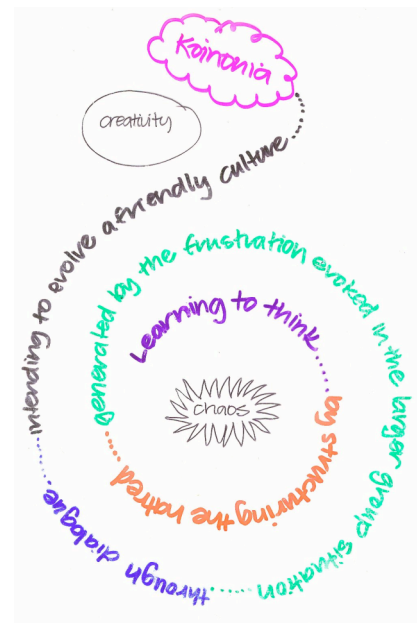 Koinonia
creativity
chaos
Learning to think
by structuring the hatred
generated by the frustration evoked in the larger group situation
through dialogue
intending to evolve a friendly culture